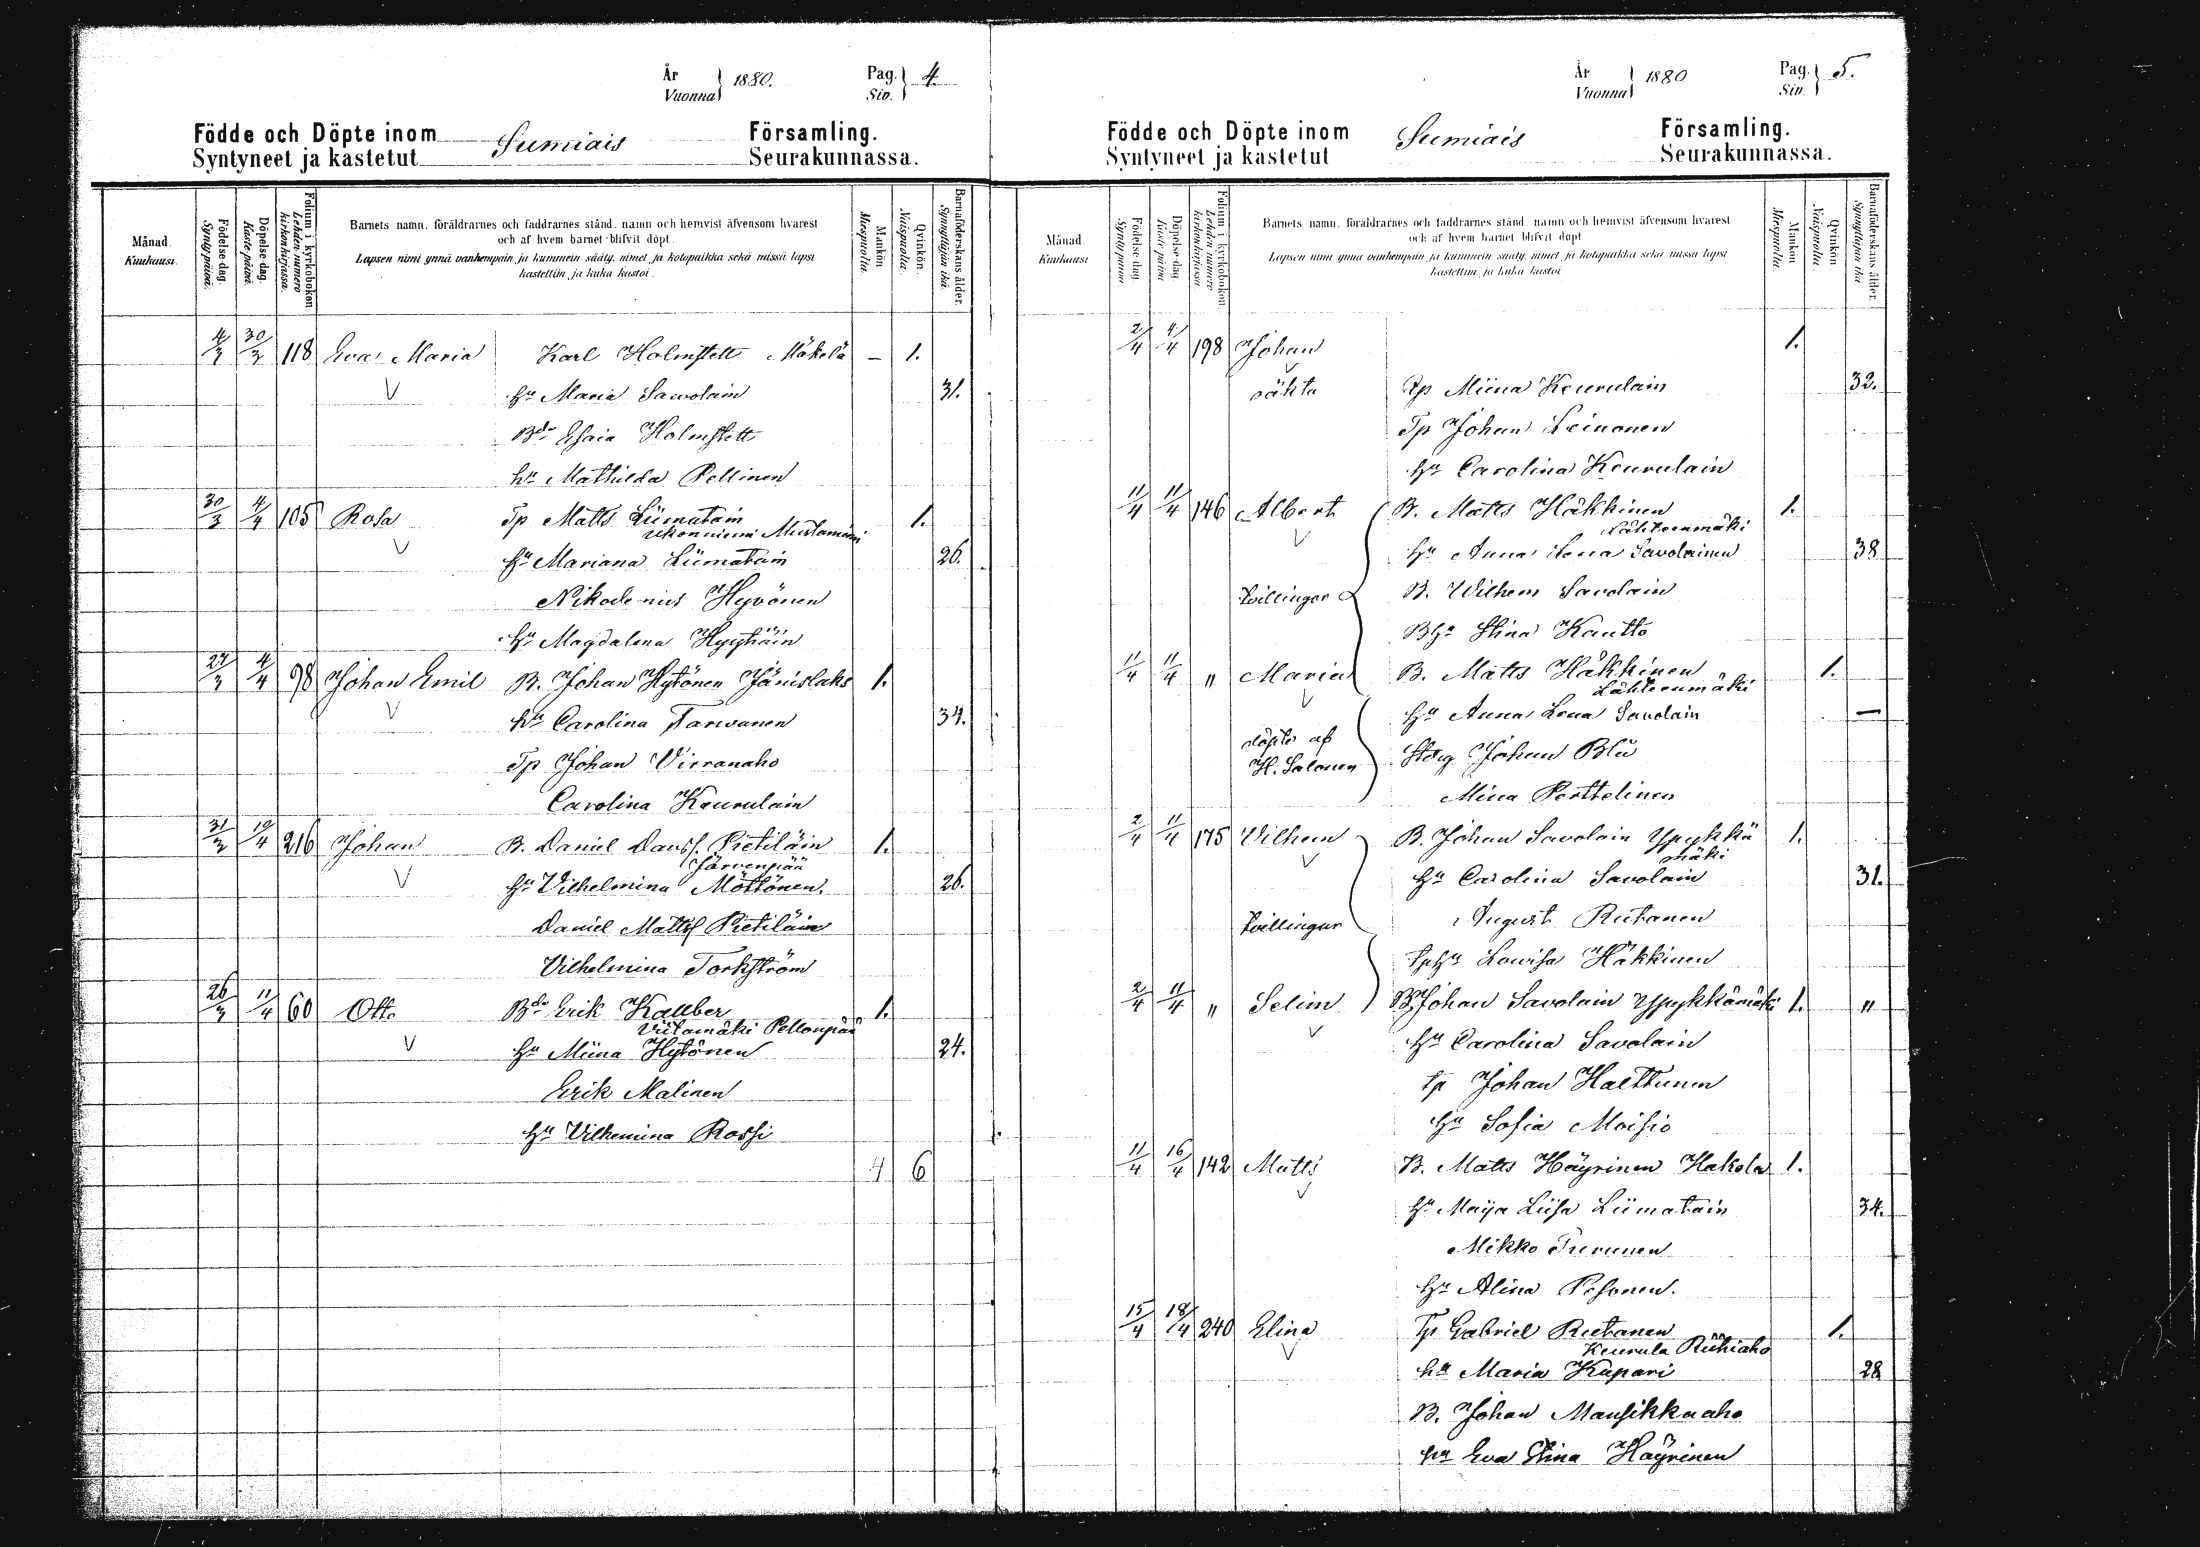 År
Vuonna
1880.
Pag.
Siv.
4.
Födde och Döpte inom
Syntyneet ja kastetut
Sumiais
Församling.
Seurakunnassa.
Månad.
Kuukausi.
Födelse-dag.
Syntypäivä.
Döpelse-dag.
Kastepäivä.
Folium i kyrkoboken
Lehden numero kirkonkirjassa.
Barnets namn, föräldrarnes och faddrarnes stånd, namn och hemvist äfvensom hvarest
och af hvem barnet blifvit döpt.
Lapsen nimi ynnä vanhempain ja kummein sääty, nimet ja kotopaikka sekä missä lapsi
kastettiin ja kuka kastoi.
Mankön.
Miespuolia.
Qvinkön.
Naispuolia.
Barnaföderskans ålder.
Synnyttäjän ikä.
4/3 30/3 118 Eva Maria Karl Holmstett Mäkelä — 1.
hu Maria Sawolain 31.
Bds Esaia Holmstett
hu Mathilda Pellinen
30/3 4/4 105 Rosa Tp Matts Liimatain 1.
Ukonniemi Mustaniemi
hu Mariana Liimatain 26.
Nikodemus Hyvönen
hu Magdalena Hyytiäin
27/3 4/4 98 Johan Emil B. Johan Hytönen Jänislaks 1.
hu Carolina Tarvanen 34.
Tp Johan Virranaho
Carolina Keurulain
31/3 10/4 216 Johan B. Daniel Danss. Pietiläin 1.
Järvenpää
hu Vilhelmina Möttönen. 26.
Daniel Matts Pietiläin
Vilhelmina Torkström
26/3 11/4 60 Otto Bds Erik Kallber 1.
Viitamäki Pellonpää
hu Miina Hytönen 24.
Erik Malinen
hu Vilhemina Rossi
4 6
År
Vuonna
1880
Pag.
Siv.
5.
Födde och Döpte inom
Syntyneet ja kastetut
Sumiais
Församling.
Seurakunnassa.
Månad.
Kuukausi
Födelse-dag.
Syntypäivä
Döpelse-dag.
Kastepäivä
Folium i kyrkoboken
Lehden numero kirkonkirjassa
Barnets namn, föräldrarnes och faddrarnes stånd, namn och hemvist äfvensom hvarest
och af hvem barnet blifvit döpt
Lapsen nimi ynnä vanhempain ja kummein sääty, nimet ja kotopaikka sekä missä lapsi
kastettiin ja kuka kastoi
Mankön
Miespuolia.
Qvinkön
Naispuolia.
Barnaföderskans ålder.
Synnyttäjän ikä
2/4 4/4 198 Johan 1.
oäkta Pp Miina Keurulain 32.
Tp Johan Leinonen
hu Carolina Keurulain
11/4 11/4 146 Albert B. Matts Häkkinen 1.
Lähteenmäki
hu Anna Lena Savolainen 38
Tvillingar B. Wilhem Savolain
Bhu Stina Kautto
11/4 11/4 " Maria B. Matts Häkkinen 1.
Lähteenmäki
hu Anna Lena Savolain —
döpte af
H. Salonen
Stdg Johan Blå
Miina Perttelinen
2/4 11/4 175 Vilhem B. Johan Savolain Ypykkä 1.
mäki
hu Carolina Savolain 31.
Tvillingar August Rutanen
tphu Lowisa Häkkinen
2/4 11/4 " Selim B. Johan Savolain Ypykkämäki 1. "
hu Carolina Savolain
tp Johan Halttunen
hu Sofia Moisio
11/4 16/4 142 Matts B. Matts Häyrinen Hakola 1.
hu Maija Liisa Liimatain 34.
Mikko Turunen
hu Alina Pesonen.
15/4 18/4 240 Elina Tp Gabriel Rutanen 1.
Keurula Riihiaho
hu Maria Kupari 28
B. Johan Mansikkaaho
hu Eva Stina Häyrinen